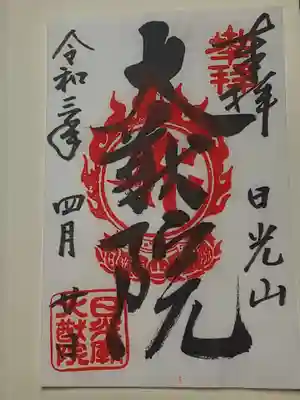 奉拝
日光山
大猷院
令和三年 四月 廿日
日光廟
大猷院